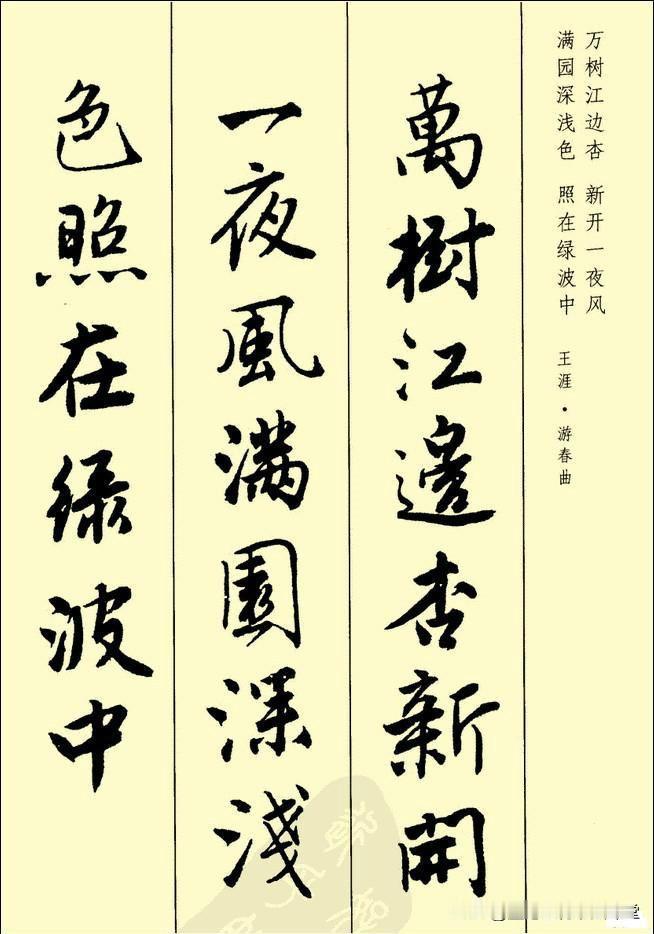 万树江边杏 新开一夜风
满园深浅色 照在绿波中
王涯·游春曲
萬樹江邊杏新開
一夜風滿園深淺
色照在綠波中